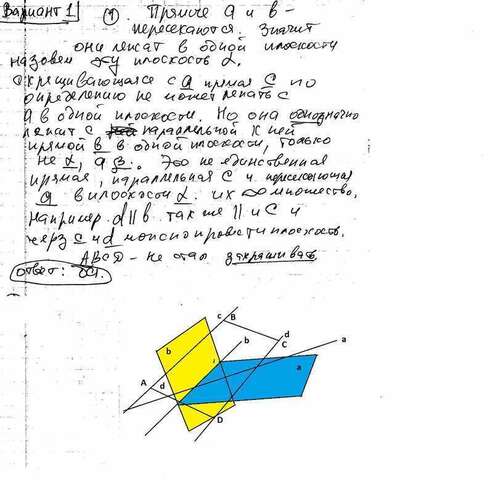 Вариант 1
① Прямые a и b -
пересекаются. Значит
они лежат в одной плоскости
назовем эту плоскость α.
Скрещивающаяся с a прямая c по
определению не может лежать с
a в одной плоскости. Но она однозначно
лежит с параллельной к ней
прямой b в одной плоскости, только
не α, а β. Это не единственная
прямая, параллельная c и пересекающая
a в плоскости α. их ∞ множество.
Например d || b также || и c и
через c и d можно провести плоскость.
ABCD - не стал закрашивать.
ответ: ∞.
c B
b b d
C a
a
A d
D